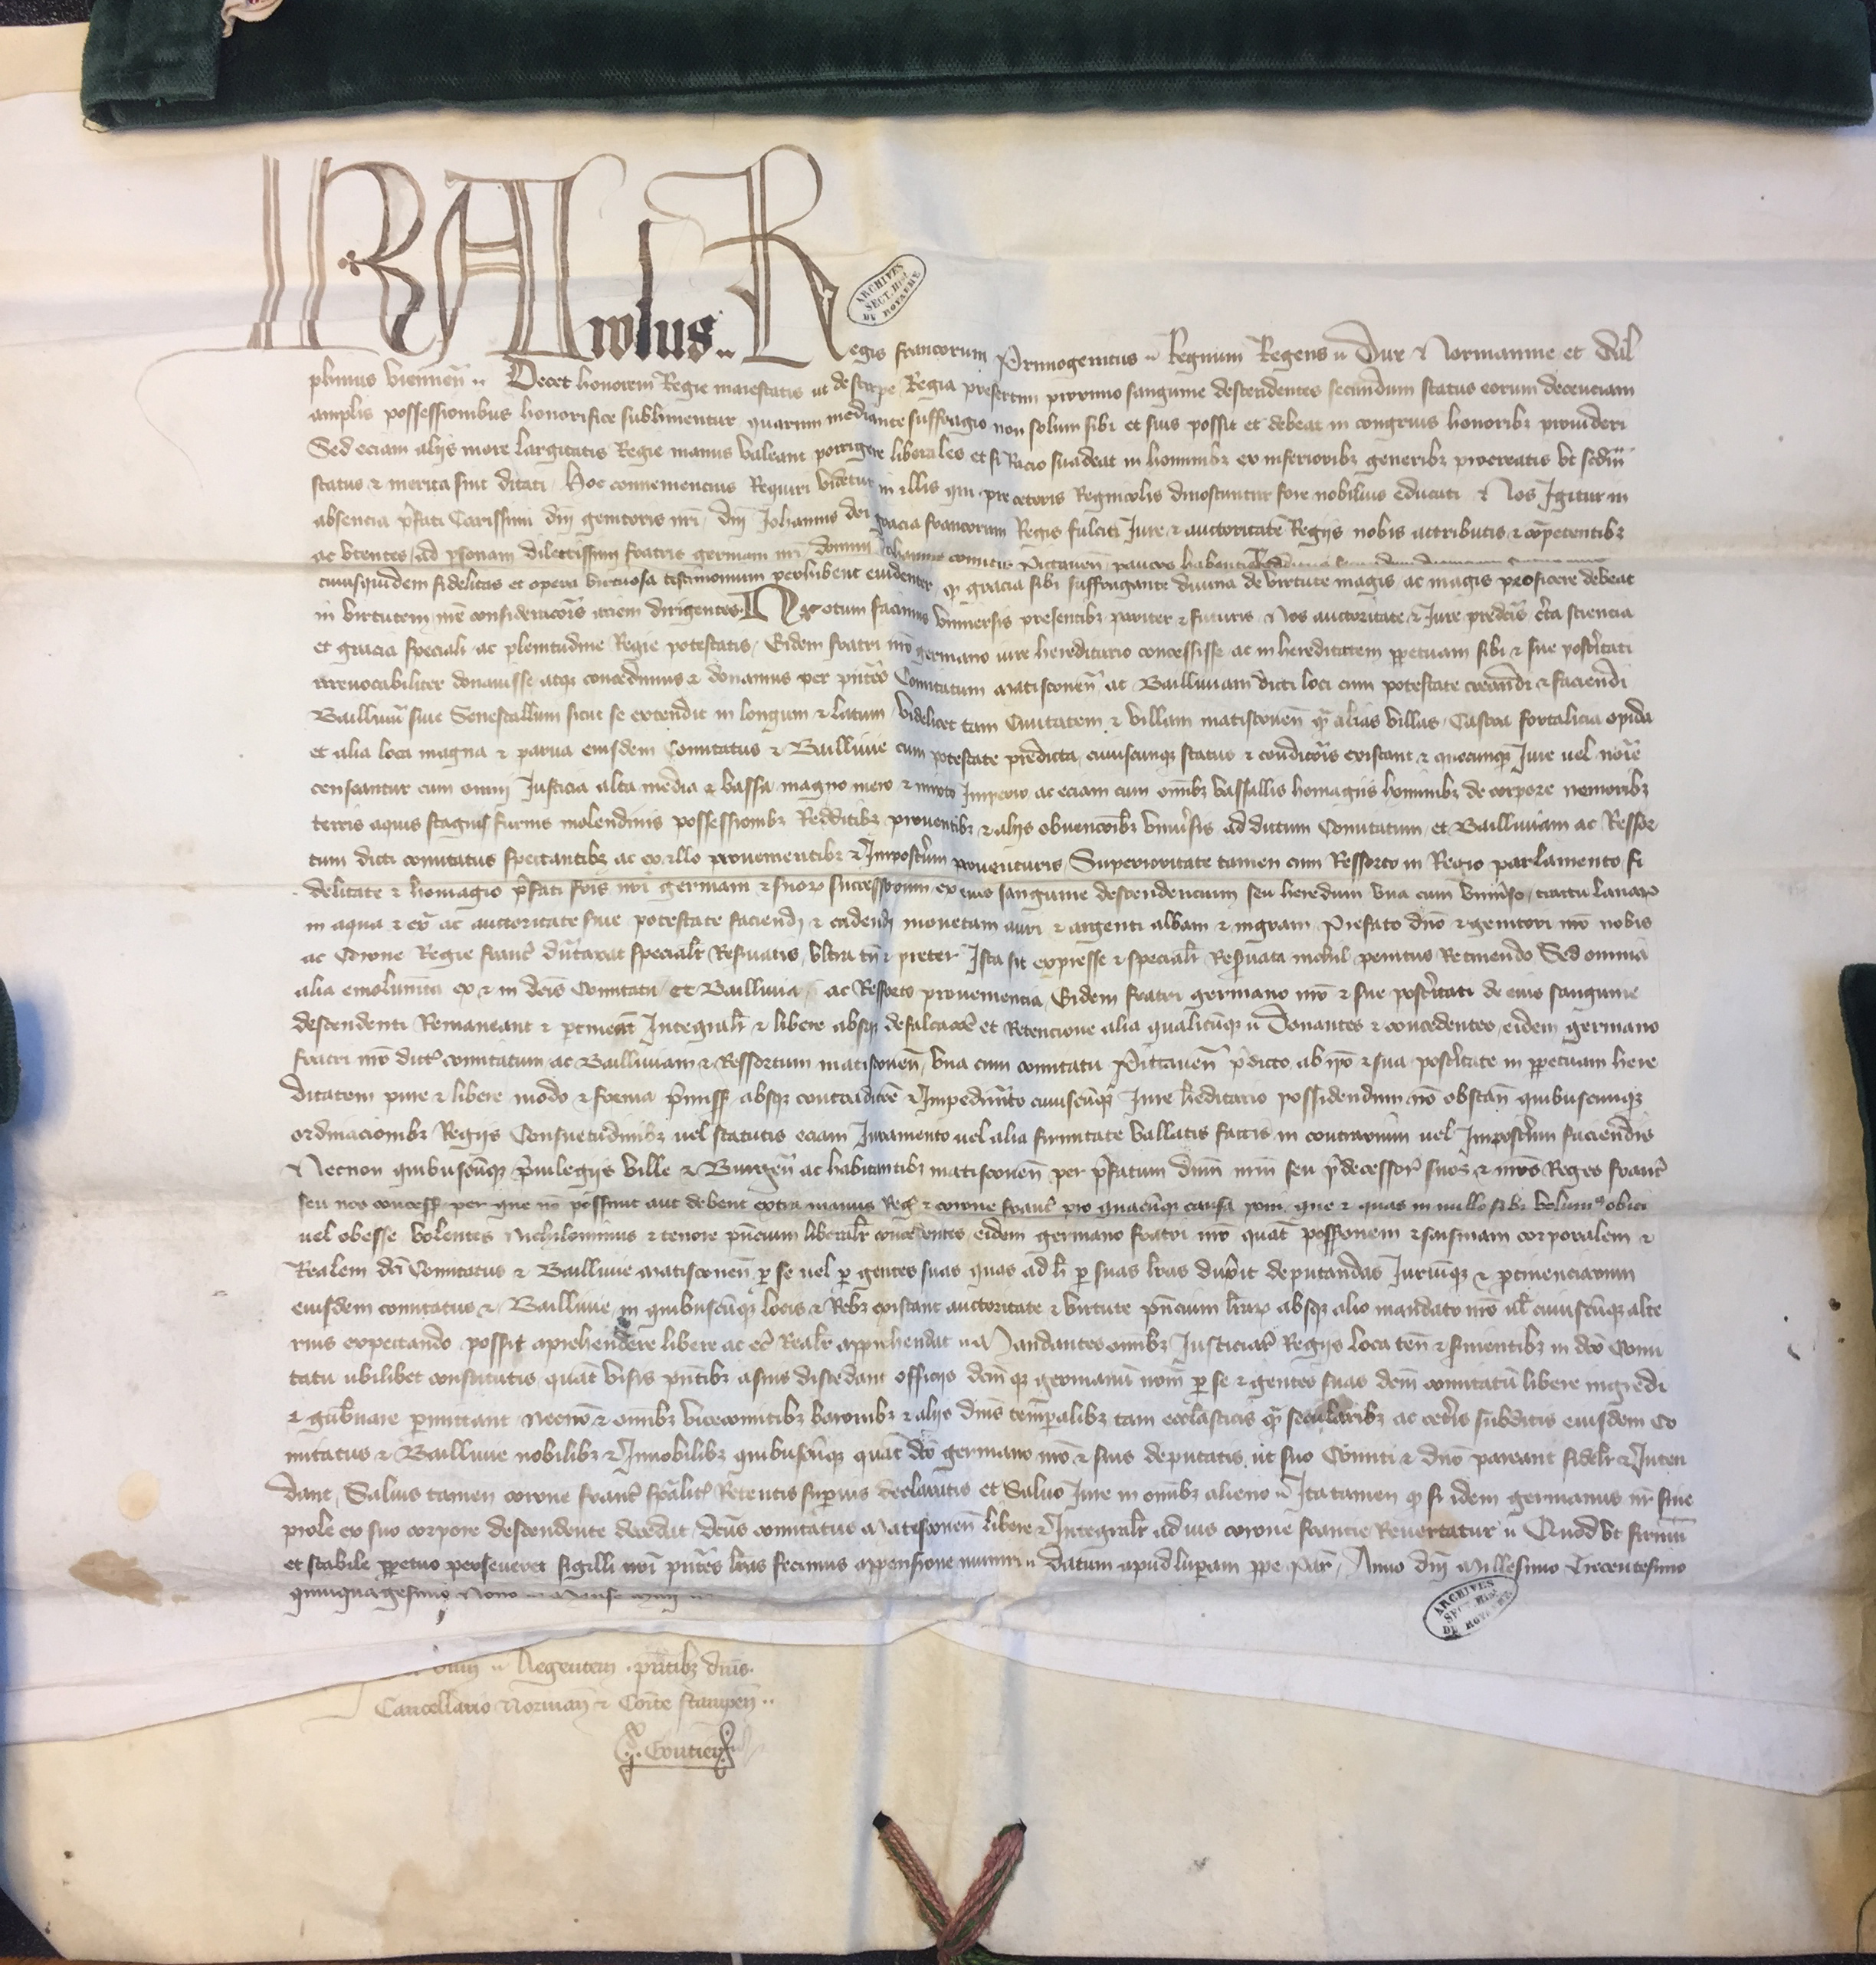 KAROLUS Regis francorum Primogenitus Regnum Regens Dux & Normannie et Dal
phinus viennen̄ Decet honorem Regie maiestatis ut de stirpe Regia presertim proximo sanguine descendentes secundum status eorum decenciam
amplis possessionibus honorifice sublimentur quarum mediante suffragio non solum sibi et suis possit et debeat in congruis honoribȝ prouideri
Sed eciam alijs more largitatis Regie manus valeant porrigere liberales et si Racio suadeat in hominibȝ ex inferioribȝ generibȝ procreatis vt scd̄m
status & merita sint ditati hoc conueniencius Requiri videtur in illis qui pre ceteris Regnicolis dinoscuntur fore nobilius educati & Nos Igitur in
absencia p̄fati Carissimi dn̄i genitoris nr̄i dn̄i Johannis dei gracia francorum Regis fulciti Jure & auctoritate Regijs nobis attributis & cōpetentibȝ
ac vtentes ad p̱sonam dilectissimi fratris germani nr̄i domini Johannis comitis Pictauen̄
cuiusquidem fidelitas et opera virtuosa testimonium perhibent euidenter ꝙ gracia sibi suffragante diuina de virtute magis ac magis proficere debeat
in virtutem nr̄e consideracōis aciem dirigentes Notum facimus vniuersis presentibȝ pariter & futuris Nos auctoritate & Jure predcīs cērta sciencia
et gracia speciali ac plenitudine Regie potestatis Eidem fratri nr̄o germano iure hereditario concessisse ac in hereditatem ꝑpetuam sibi & sue post̄itati
irreuocabiliter donauisse atqȝ concedimus & donamus per pn̄tes Comitatum Matisconen̄ ac Bailliuiam dicti loci cum potestate creandi & faciendi
Bailliuū siue Senescallum sicut se extendit in longum & latum videlicet tam Ciuitatem & villam matisconen̄ ꝙ̄ alias villas Castra fortalicia opida
et alia loca magna & parua eiusdem Comitatus & Bailliuie cum potestate predicta cuiuscunqȝ status & condicōis existant & quocunqȝ Jure vel noīe
censeantur cum omni Justicia alta media & bassa magno mero & mixto Imperio ac eciam cum omībȝ vassallis homagijs hominibȝ de corpore nemoribȝ
terris aquis stagnis furnis molendinis possessionibȝ Redditibȝ prouentibȝ & alijs obuencōibȝ vniūsis ad dictum Comitatum et Bailliuiam ac Ressor
tum dicti comitatus spectantibȝ ac ex illo prouenientibȝ & Imposter̄um prouenturis Superioritate tamen cum Ressorto in Regio parlamento fi
delitate & homagio p̄fati frīs nr̄i germani & suoꝝ successorum ex eius sanguine descendencium seu heredum vna cum vniūso tractu lanaꝝ
in aqua & ext̄ ac auctoritate siue potestate faciendi & cudendi monetam auri & argenti albam & nigram Prefato dn̄o & genitori nr̄o nobis
ac Corone Regie franc̄ dūtaxat specialr̄ Res̄uatis vltra tn̄ & preter Ista sit expresse & specialr̄ Res̄uata nichil penitus Retinendo Sed omnia
alia emolumēta ex & in dcīs Comitatu et Bailliuia ac Ressorto prouenientia Eidem fratri germano nr̄o & sue post̄itati de eius sanguine
descendenti Remaneant & ꝑtineāt Integralr̄ & libere absqȝ defalcacōe et Retencione alia qualicūqȝ Donantes & concedentes eidem germano
fratri nr̄o dict̄ comitatum ac Bailliuiam & Ressortum matisconen̄ vna cum comitatu Pictauen̄ p̄dicto ab ip̄o & sua post̄itate in ꝑpetuam here
ditatem pure & libere modo & forma p̄miss̄ absqȝ contradicōe & Impedim̄to cuiuscūqȝ Jure h̄editario possidendum nō obstan̄ quibuscunqȝ
ordinacionibȝ Regijs Consuetudinibȝ vel statutis eciam Juramento vel alia firmitate vallatis factis in contrarium vel Impost̄um faciendis
Necnon quibuscūqȝ p̄uilegijs ville & Burgen̄ ac habitantibȝ matisconen̄ per p̄fatum dn̄m nr̄m seu p̄decessor̄ suos & nr̄os Reges franc̄
seu nos concess̄ per que nō possint aut debent extra manus Reḡ & corone franc̄ pro quacūqȝ causa poni que & quas in nullo sibi volumꝰ obici
uel obesse volentes Nichilominus & tenore pn̄cium liberalr̄ concedentes eidem germano fratri nr̄o quāt possessionem & saisinam corporalem &
Realem dcī Comitatus & Bailliuie Matisconen̄ ꝑ se uel ꝑ gentes suas quas ad h̄ ꝑ suas lr̄as dux̄it deputandas Juriūqȝ & ꝑtinenciarum
eiusdem comitatus & Bailliuie in quibuscūqȝ locis & Rebȝ existant auctoritate & virtute pn̄cium lr̄aꝝ absqȝ alio mandato nr̄o ul̄ cuiuscūqȝ alte
rius expectando possit aprehendere libere ac ec̄ Realr̄ apprehendat Mandantes omībȝ Justiciar̄ Regijs loca ten̄ & s̄uientibȝ in dcō Comi
tatu ubilibet constitutis quāt visis pn̄tibȝ a suis discedant officijs dcm̄qȝ germanū nr̄m ꝑ se & gentes suas dcm̄ comitatū libere ingredi
& gub̄nare ꝑmittant Necnō & omībȝ vicecomitibȝ baronibȝ & alijs dn̄is temp̱alibȝ tam ecclāsticis ꝙ̄ secularibȝ ac cet̄is subditis eiusdem Co
mitatus & Bailliuie nobilibȝ & Innobilibȝ quibuscūqȝ quāt dcō germano nr̄o & suis deputatis ut suo Comiti & dn̄o pareant fidelr̄ & Inten
dant Saluis tamen corone franc̄ sp̄alit̄ Retentis sup̱ius declaratis et Saluo Jure in omībȝ alieno Ita tamen ꝙ si idem germanus nr̄ sine
prole ex suo corpore descendente decedat dc̄us comitatus Matisconen̄ libere & Integralr̄ ad ius corone francie Reuertatur Quod vt firmū
et stabile ꝑpetuo perseueret sigilli nr̄i pn̄tes lr̄as fecimus appensione muniri datum apud luperam ꝓpe Par̄ Anno dn̄i Millesimo Trecentesimo
quinquagesimo Nono Mense
Regentem pn̄tibȝ dn̄is
Cancellario Norman̄ & Comīte stampen̄
ARCHIVES
SECT. HIST
DU ROYAUME
ARCHIVES
SECT. HIST
DU ROYAUME